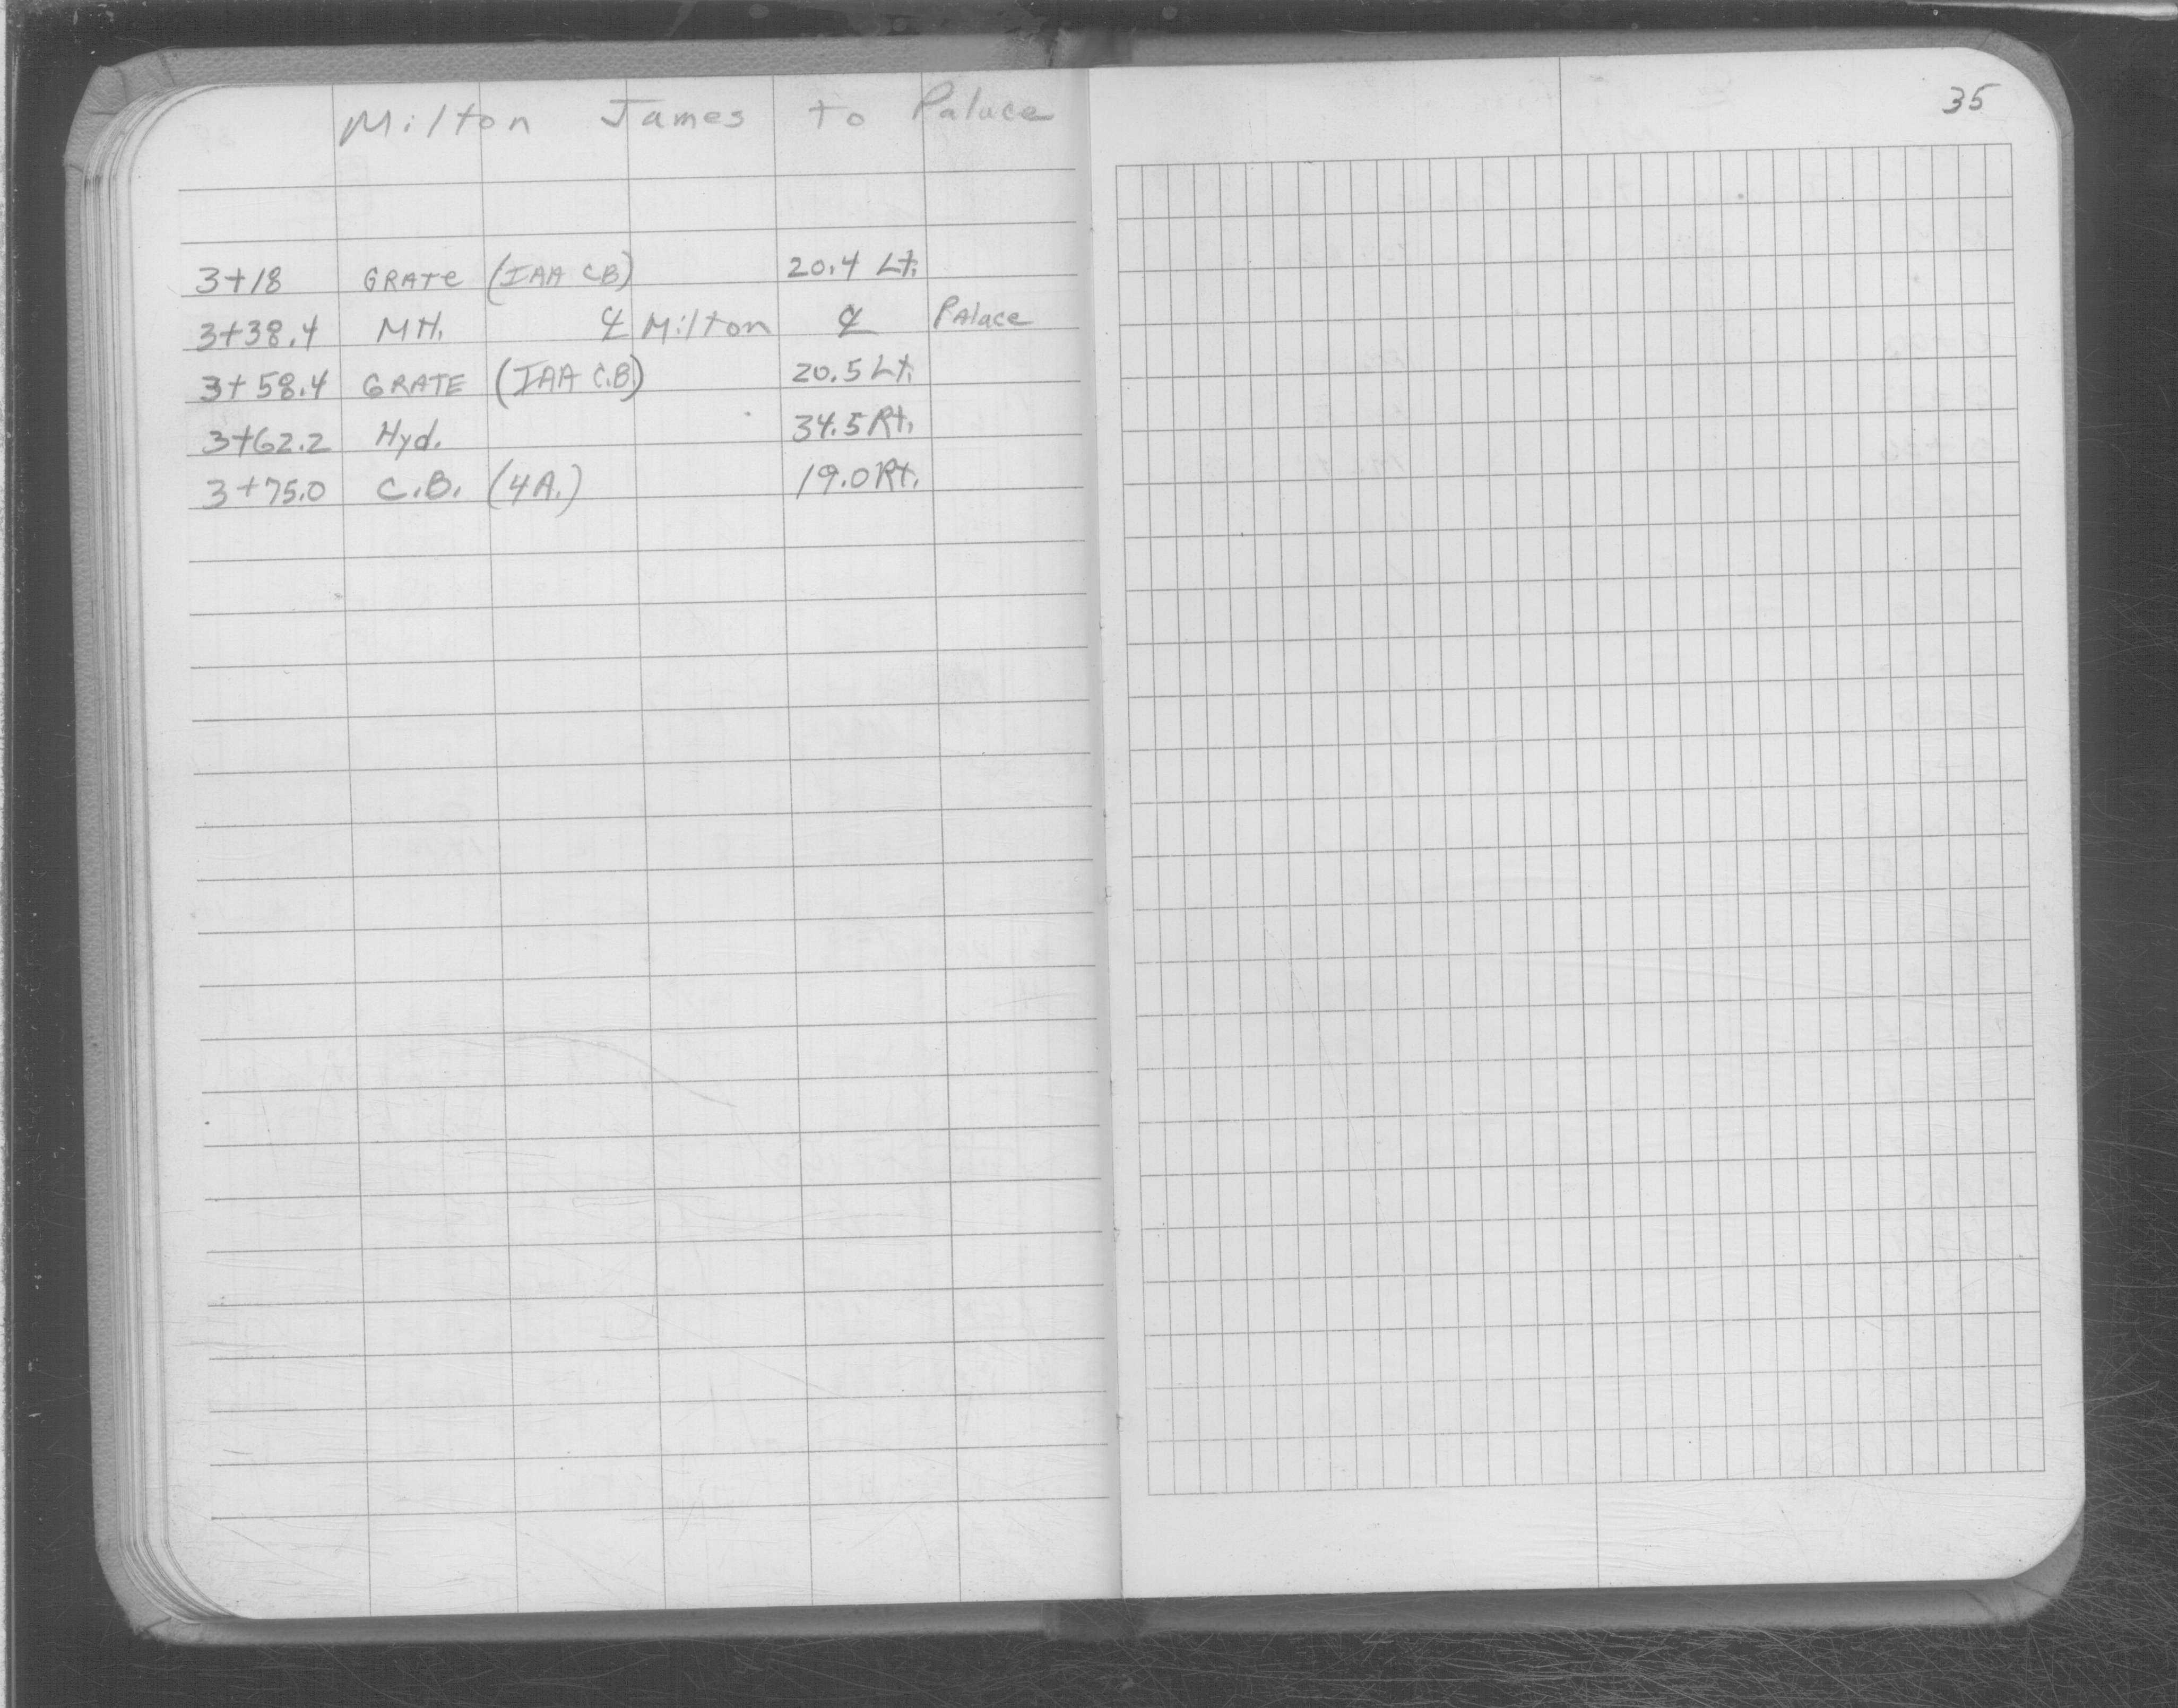 Milton James to Palace
35
3+18 GRATE (IAA CB) 20.4 Lt.
3+38.4 MH. ℄ Milton ℄ Palace
3+58.4 GRATE (IAA C.B.) 20.5 Lt.
3+62.2 Hyd. 34.5 Rt.
3+75.0 C.B. (4A.) 19.0 Rt.